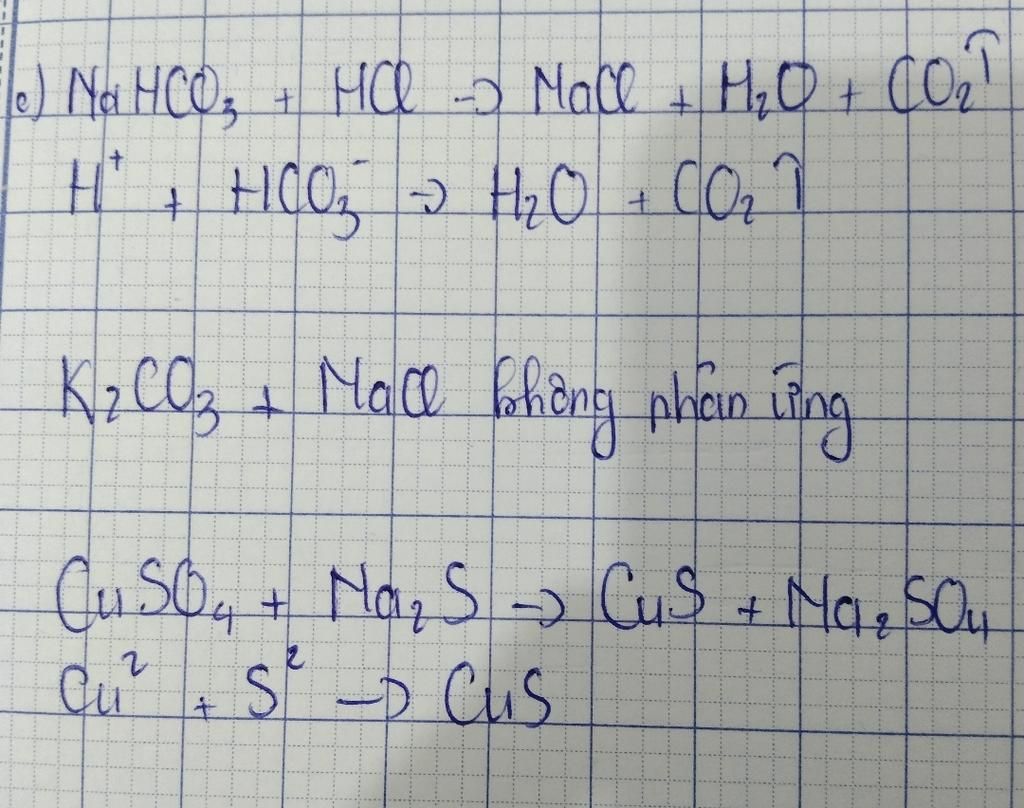 c) NaHCO₃ + HCl → NaCl + H₂O + CO₂↑
H⁺ + HCO₃⁻ → H₂O + CO₂↑
K₂CO₃ + NaCl không phản ứng
CuSO₄ + Na₂S → CuS + Na₂SO₄
Cu² + S² → CuS